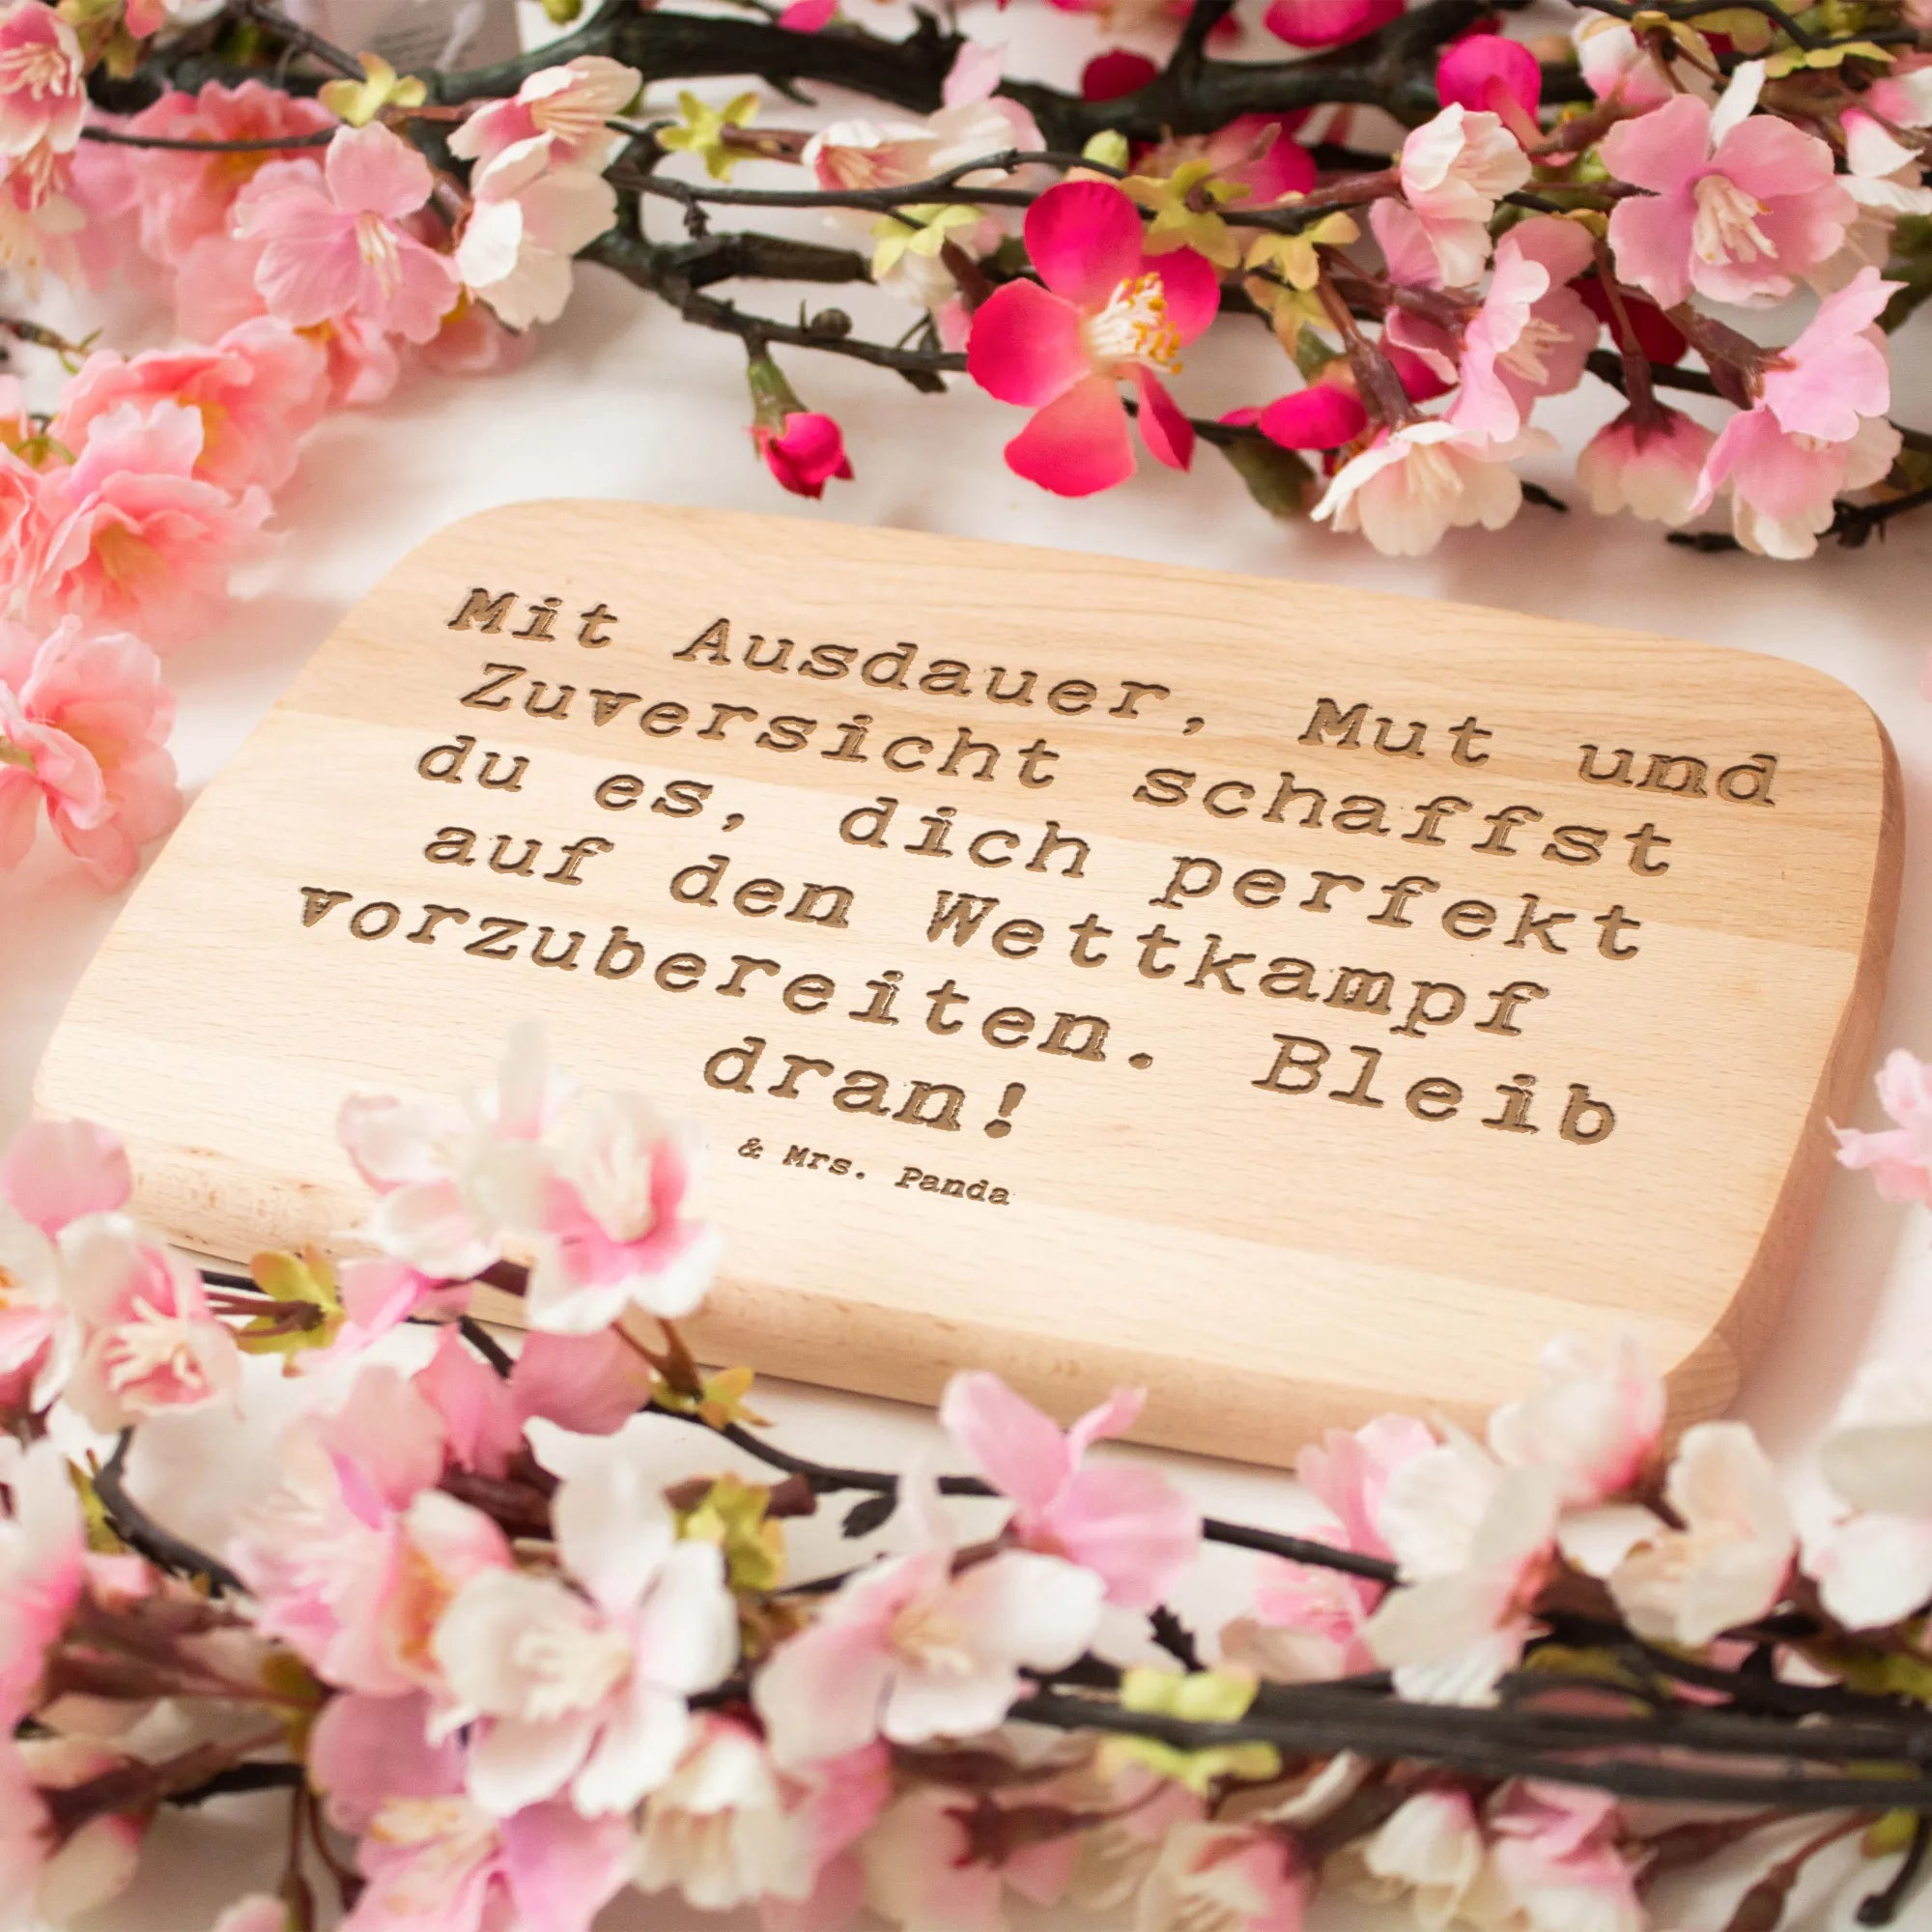 Mit Ausdauer, Mut und
Zuversicht schaffst
du es, dich perfekt
auf den Wettkampf
vorzubereiten. Bleib
dran!
& Mrs. Panda